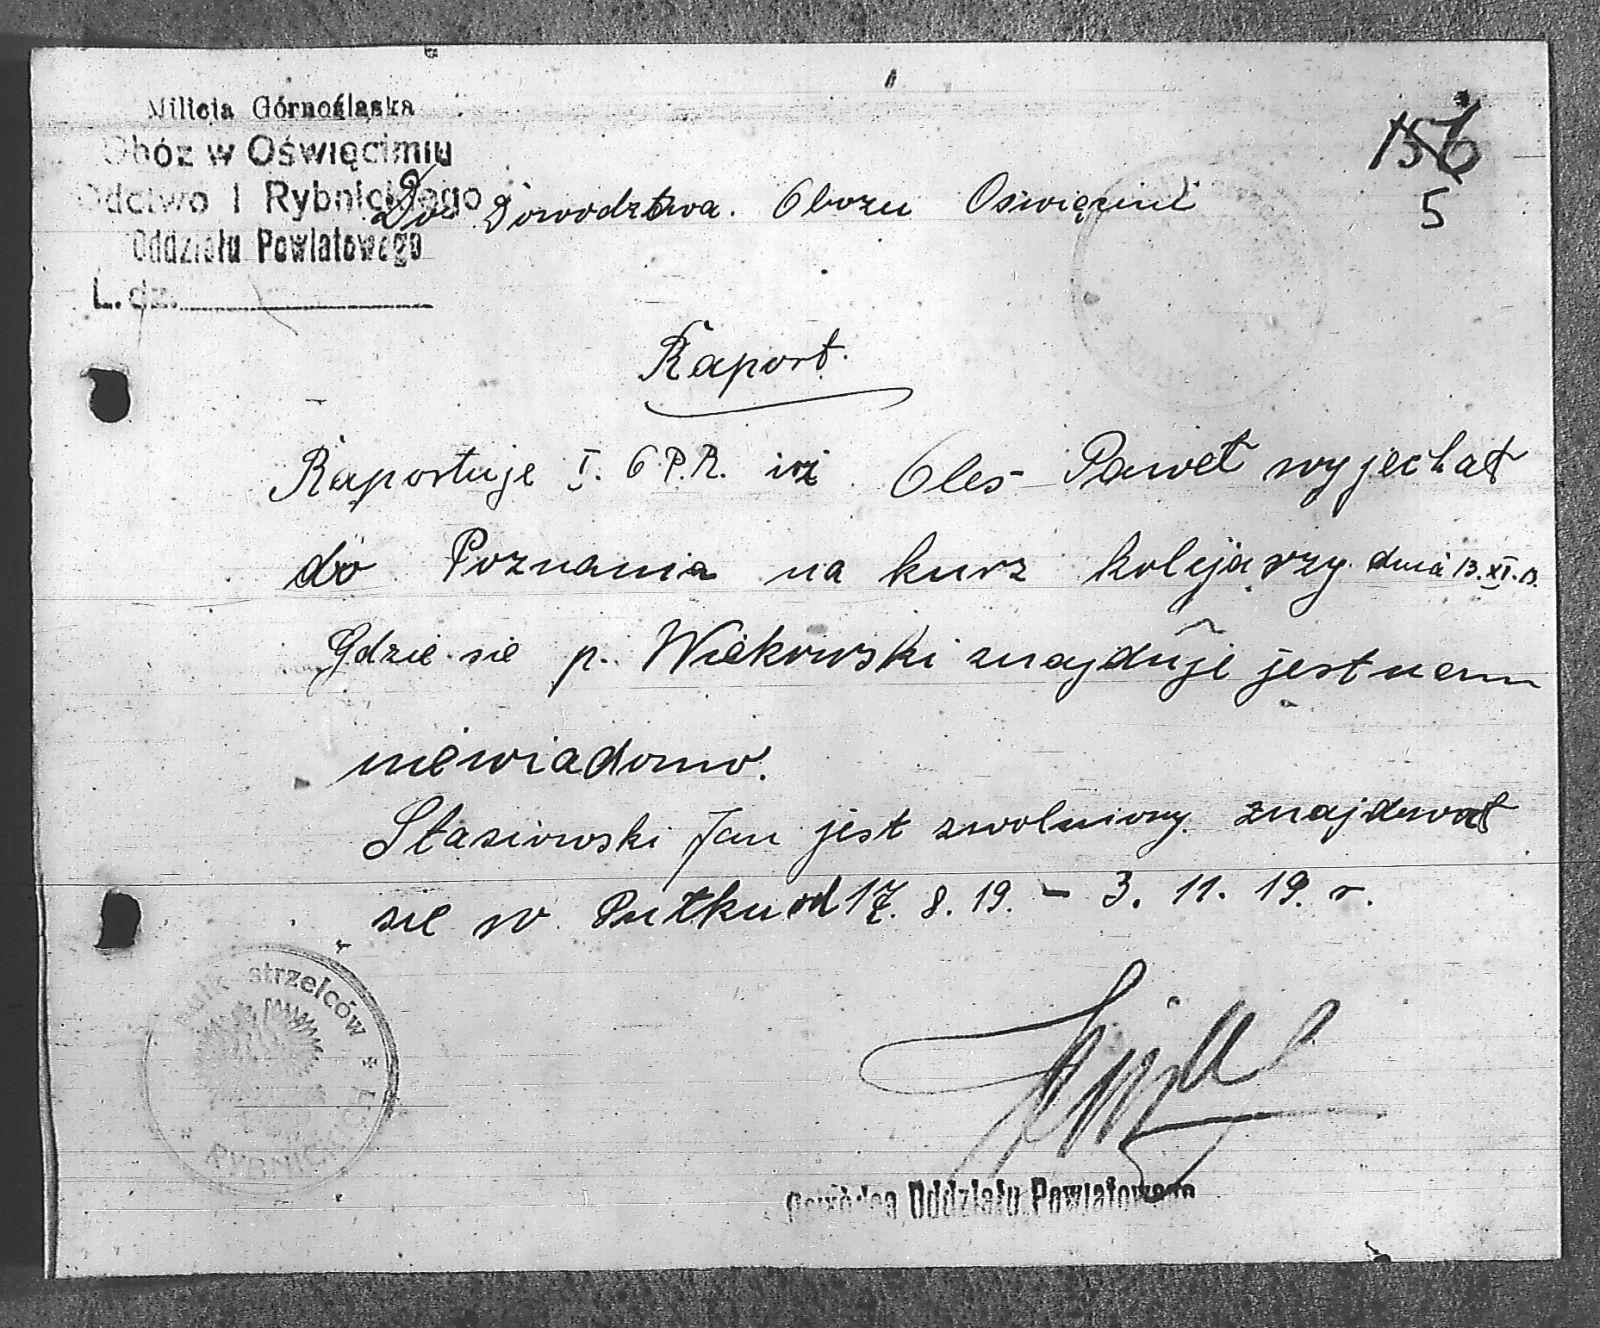 Milicja Górnośląska
Obóz w Oświęcimiu
Odctwo I Rybnickiego
Oddziału Powiatowego
L. dz.
156
5
Do Dowodztwa. Obozu Oświęcim
Raport.
Raportuje I. O.P.R. iż Oleś Paweł wyjechał
do Poznania na kurz kolejarzy dnia 13. XI. 19.
Gdzie sie p. Wiekowski znajduje jest nam
niewiadomo.
Stasiowski Jan jest zwolniony. znajdował
sie w Pułku od 17. 8. 19. - 3. 11. 19. r.
pułk strzelców
RYBNICKICH
Dowódca Oddziału Powiatowego